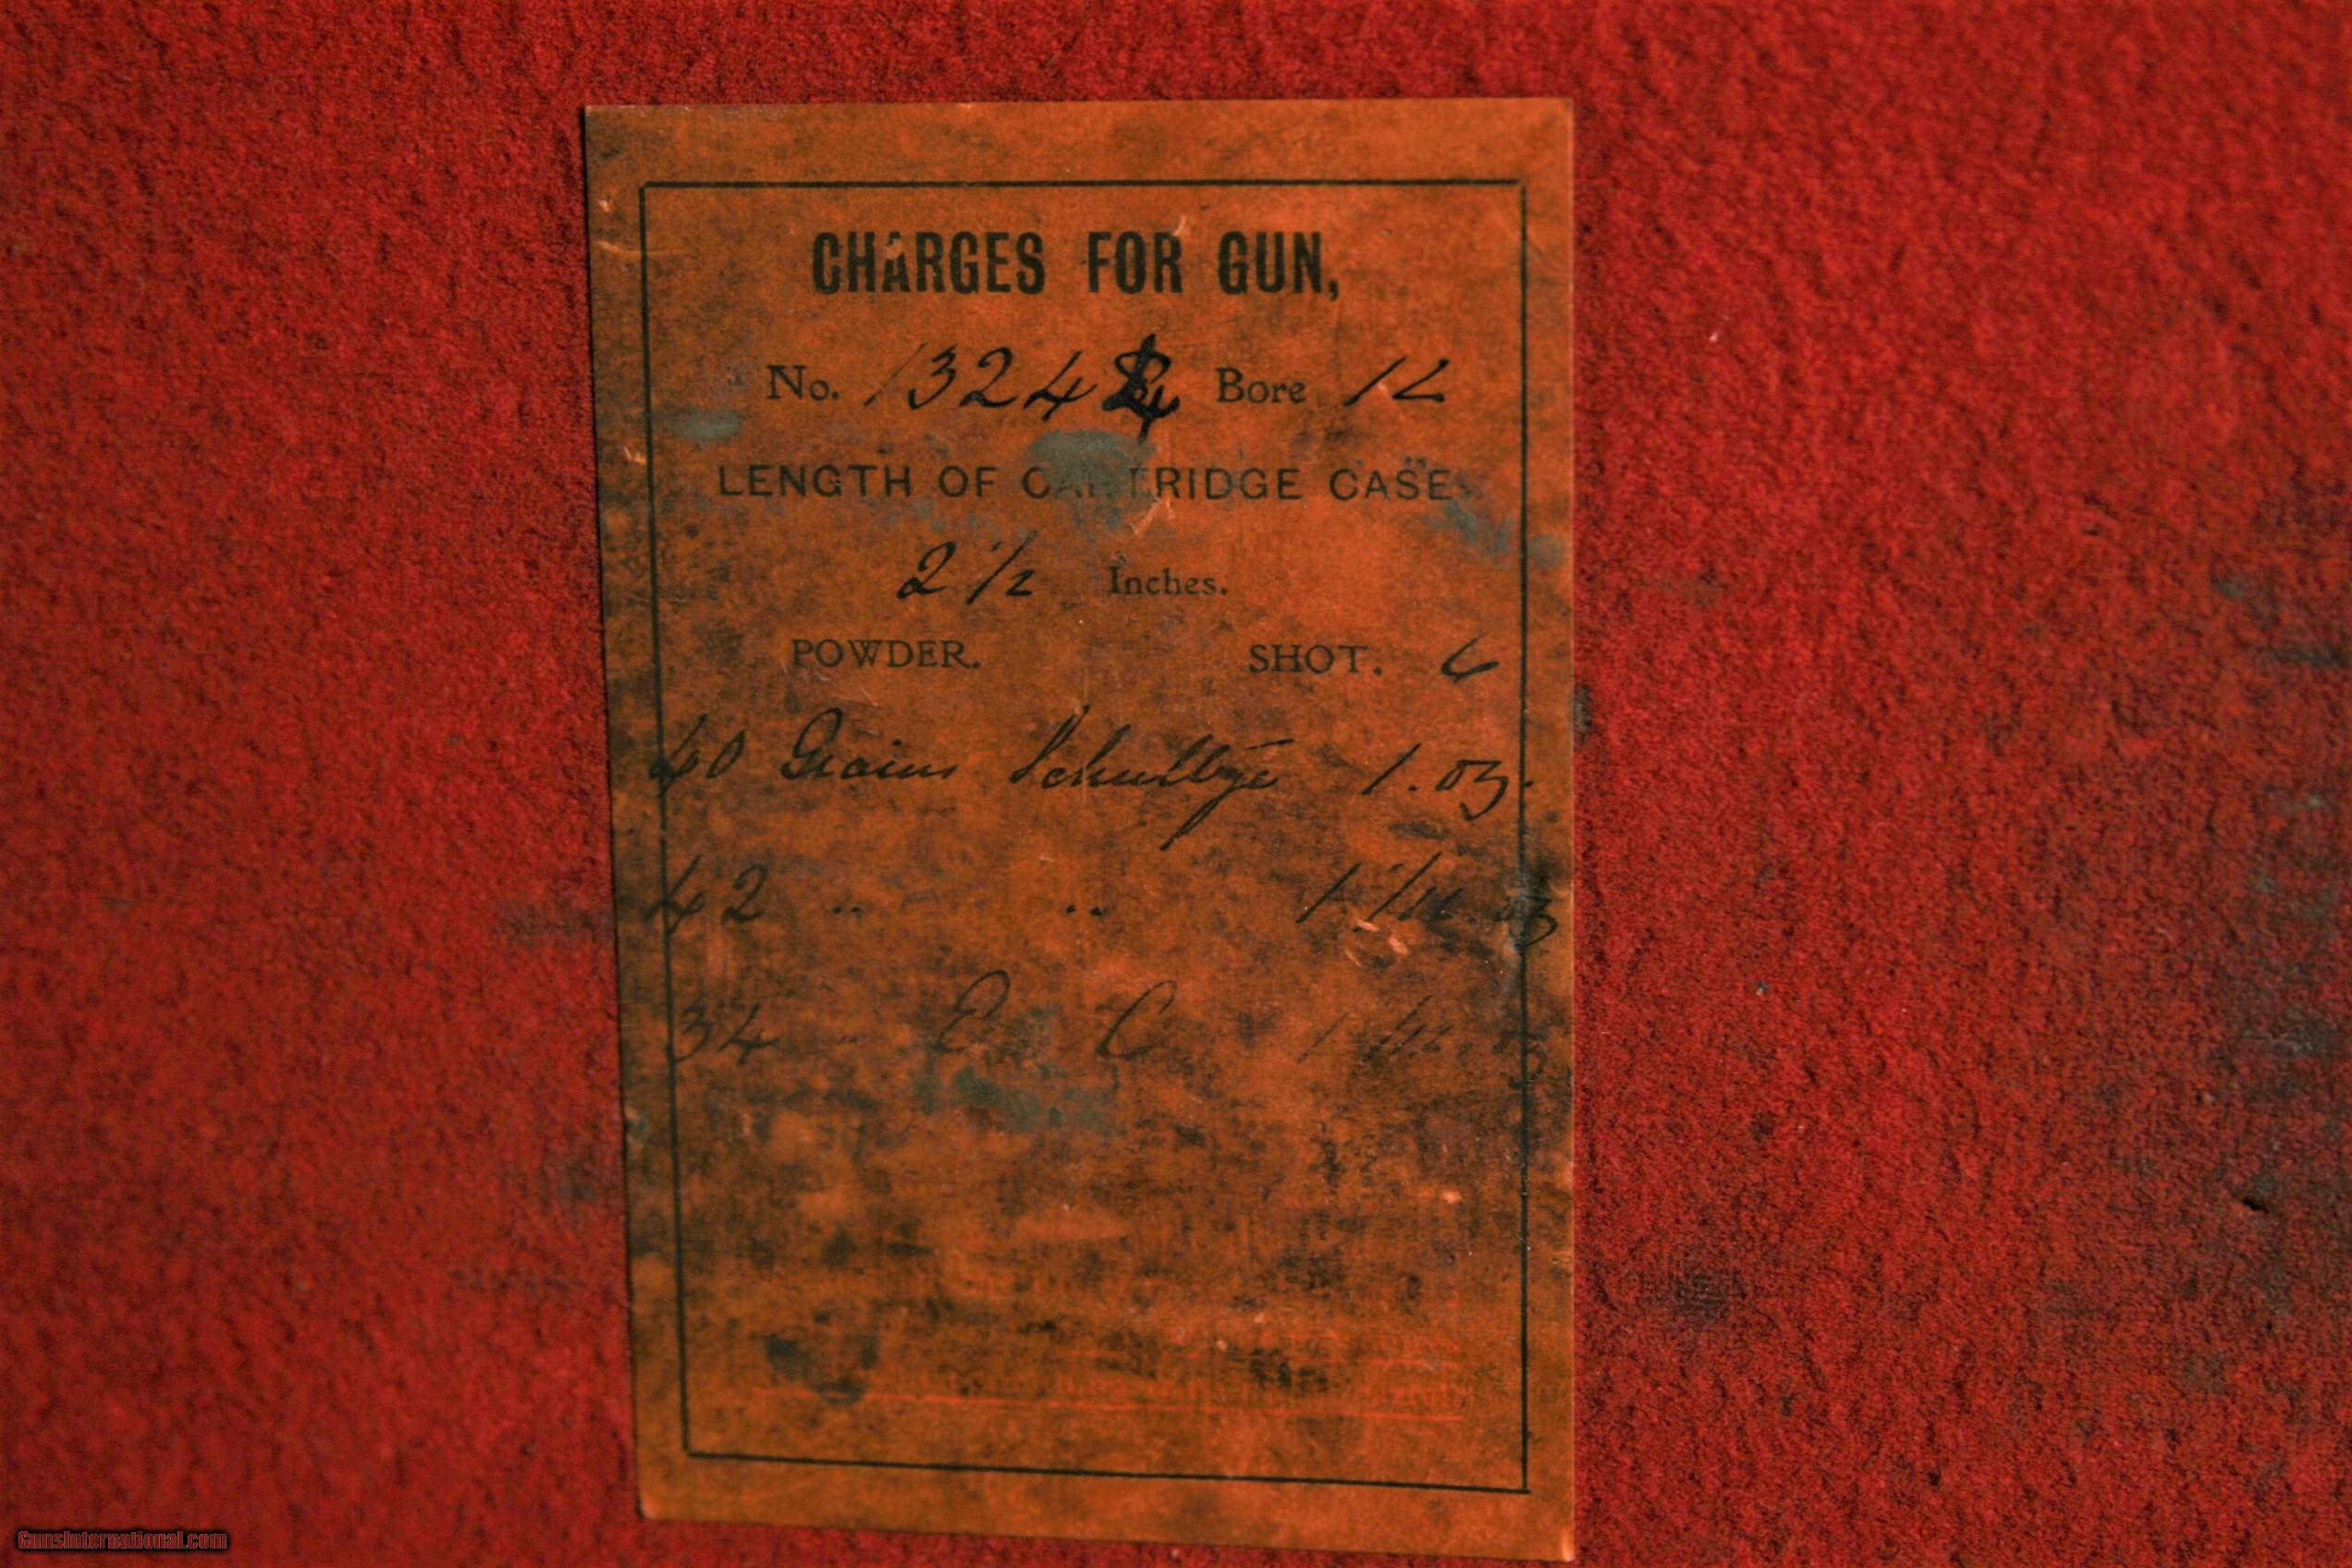 CHARGES FOR GUN,
No. 13244 Bore 12
LENGTH OF CARTRIDGE CASE
2 1/2 Inches.
POWDER. SHOT. 6
40 Grains Schultze 1. oz.
42 " " 1 1/16 oz
34 " E. C 1 1/16 oz
GunsInternational.com